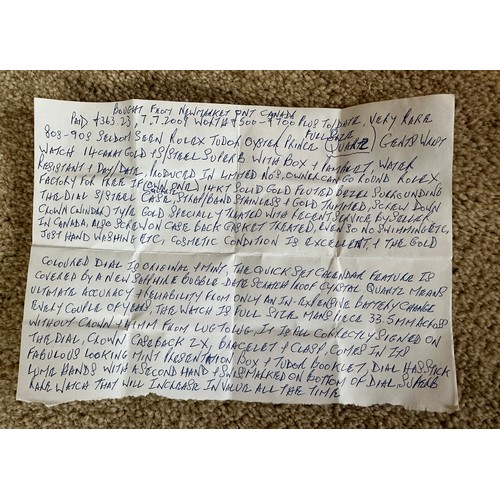 BOUGHT FROM NEWMARKET ONT CANADA
PAID £363.23, 7.7.2009 WORTH £500-£700 PLUS TO DATE, VERY RARE
80S-90S SELDOM SEEN ROLEX TUDOR OYSTER PRINCE FULL SIZE QUARTZ) GENTS WRIST
WATCH 14 CARAT GOLD & S/STEEL SUPERB WITH BOX & PAMPHLET, WATER
RESISTANT & DAY/DATE, PRODUCED IN LIMITED NOS, OWNER CAN GO ROUND ROLEX
FACTORY FOR FREE IF (OWN ONE) 14KT SOLID GOLD FLUTED BEZEL SURROUNDING
THE DIAL S/STEEL CASE, STRAP/BAND STAINLESS & GOLD TRIMMED, SCREW DOWN
CROWN (WINDER) TYPE GOLD SPECIALLY TREATED WITH RECENT SERVICE BY SELLER
IN CANADA, ALSO SCREW ON CASE BACK GASKET TREATED, EVEN SO NO SWIMMING ETC,
JUST HAND WASHING ETC, COSMETIC CONDITION IS EXCELLENT, & THE GOLD
COLOURED DIAL IS ORIGINAL & MINT, THE QUICK SET CALENDAR FEATURE IS
COVERED BY A NEW SAPPHIRE BUBBLE DATE SCRATCH PROOF CRYSTAL QUARTZ MEANS
ULTIMATE ACCURACY & RELIABILITY FROM ONLY AN IN-EXPENSIVE BATTERY CHANGE
EVERY COUPLE OF YEARS, THE WATCH IS FULL SIZE MANS PIECE 33.5MM ACROSS
WITHOUT CROWN & MM FROM LUG TO LUG, IT IS ALL CORRECTLY SIGNED ON
THE DIAL, CROWN CASE BACK 2X, BRACELET & CLASP, COMES IN ITS
FABULOUS LOOKING MINT PRESENTATION BOX & TUDOR BOOKLET, DIAL HAS STICK
LUME HANDS WITH A SECOND HAND & SWISS MARKED ON BOTTOM OF DIAL, SUPERB
RARE WATCH THAT WILL INCREASE IN VALUE ALL THE TIME